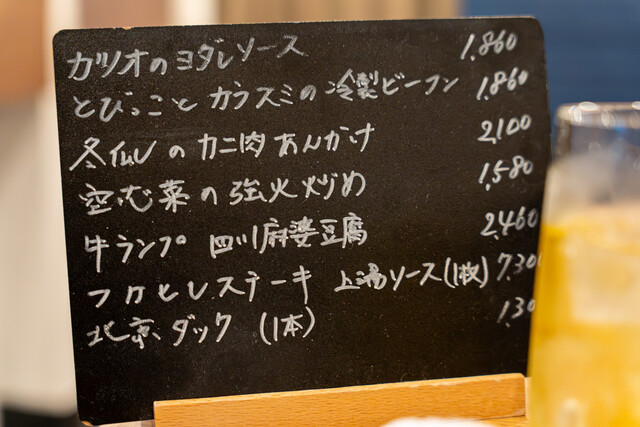 カツオのヨダレソース 1,860
とびっことカラスミの冷製ビーフン 1,860
冬仏のカニ肉あんかけ 2,100
空心菜の強火炒め 1,580
牛ランプ 四川麻婆豆腐 2,460
フカヒレステーキ 上湯ソース(1枚) 7,300
北京ダック (1本) 1,30